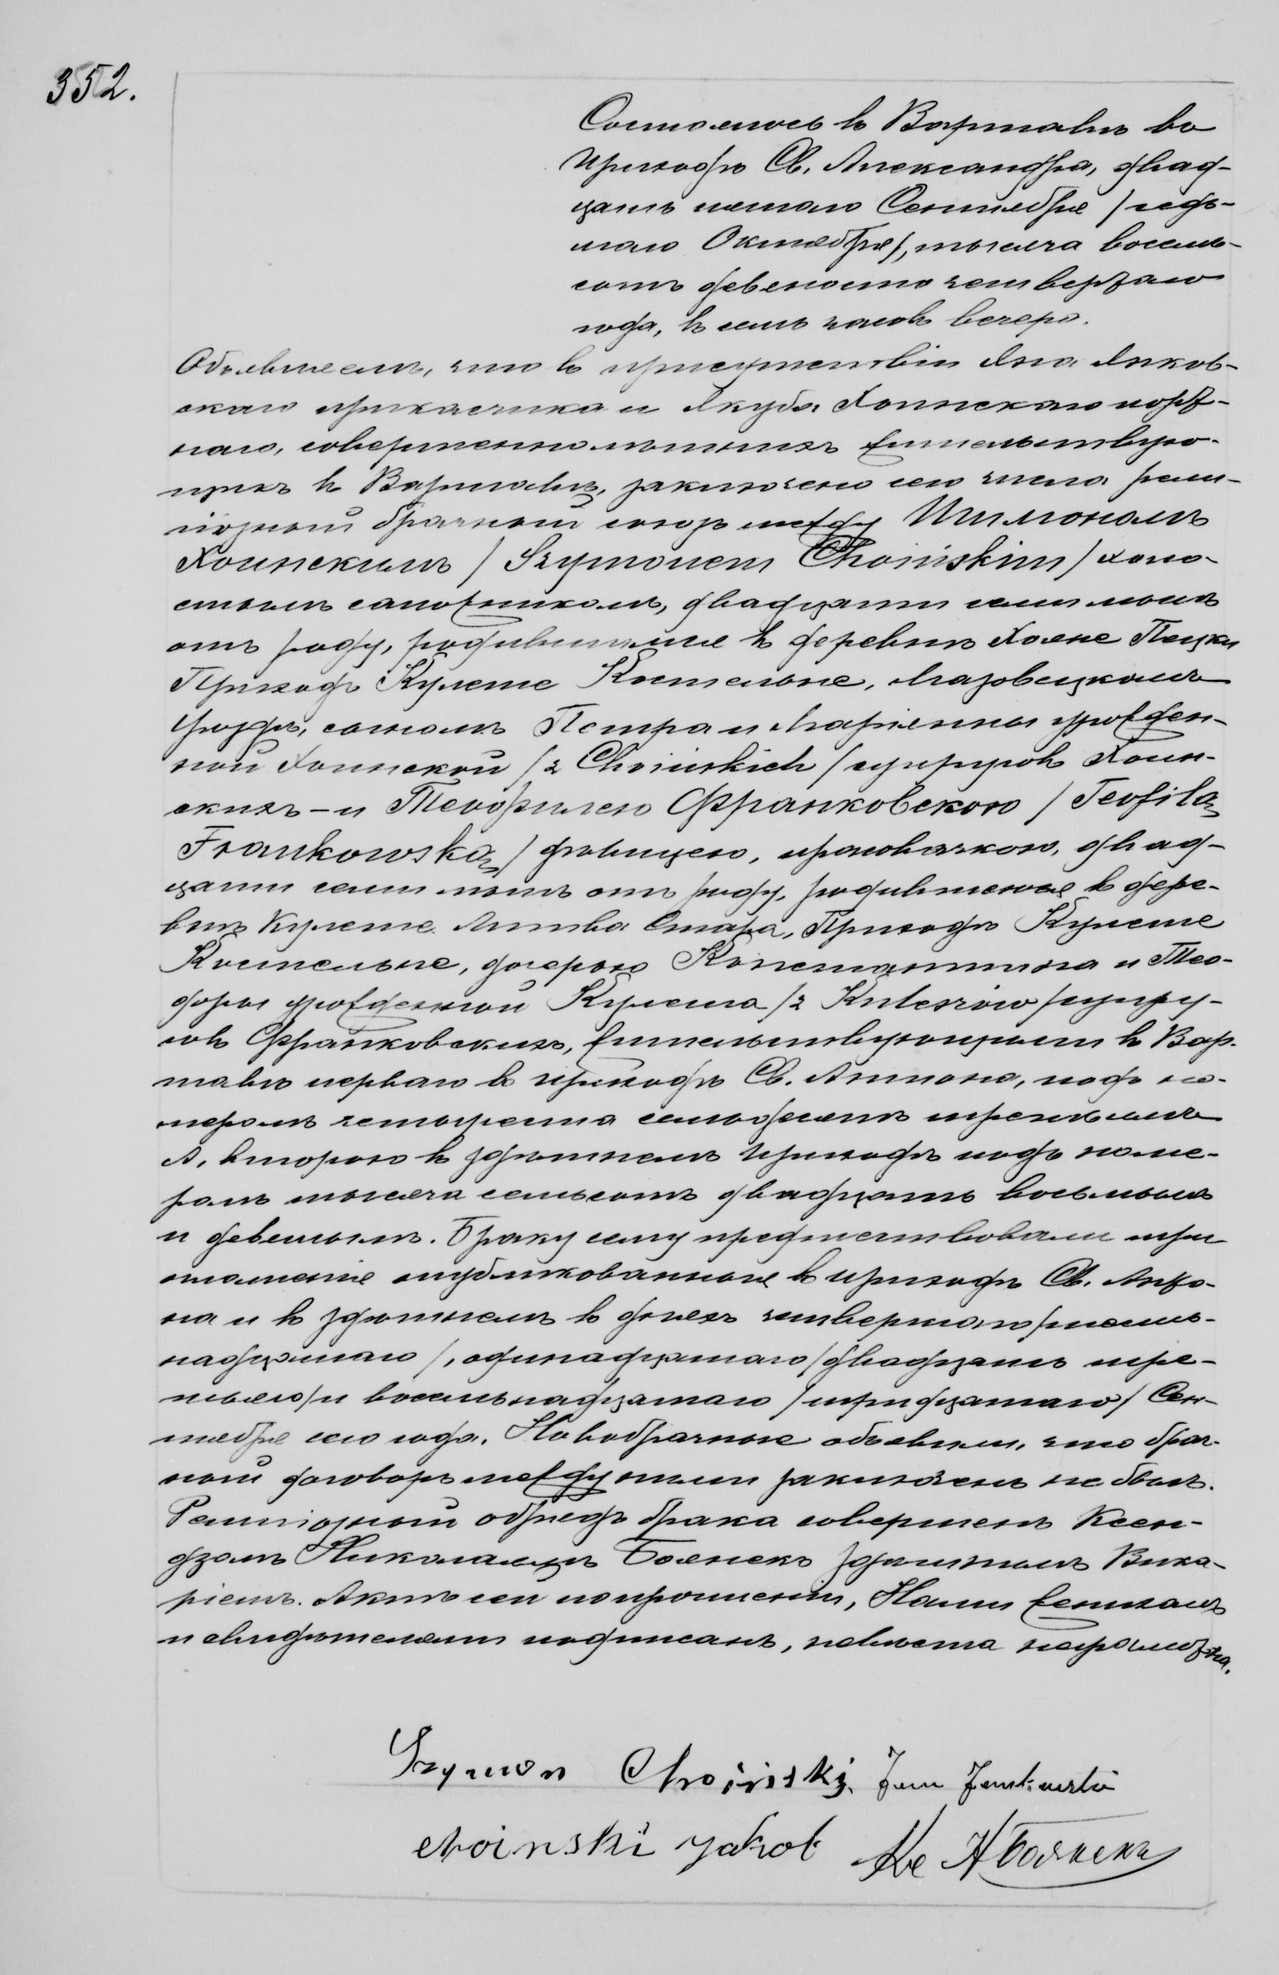 352.
Состоялось въ Варшавѣ въ
приходѣ Св. Александра, двад-
цать пятаго Сентября /седь-
маго Октября/, тысяча восемь-
сотъ девяносто четвертаго
года, въ семь часовъ вечера.
Объявляемъ, что въ присутствіи Яна Янков-
скаго прикасчика и Якуба Хоинскаго порт-
наго, совершеннолѣтнихъ жительствую-
щихъ въ Варшавѣ, заключенъ сего числа рели-
гіозный брачный союзъ между Шимономъ
Хоинскимъ / Szymonem Choińskim / холо-
стымъ сапожникомъ, двадцати семи лѣтъ
отъ роду, родившимся въ деревнѣ Хояне Пецки
Приходѣ Кулеше Костельне, Мазовецкомъ
Уѣздѣ, сыномъ Петра и Маріанны урожден-
ной Хоинской /z Choińskich / супруговъ Хоин-
скихъ – и Теофилею Франковскою / Teofilą
Frankowską / дѣвицею, прововачкою, двад-
цати семи лѣтъ отъ роду, родившеюся въ дере-
внѣ Кулеше Литва Стара, Приходѣ Кулеше
Костельне, дочерью Константина и Тео-
доры урожденной Кулеша /z Kuleszów /супру-
говъ Франковскихъ, жительствующими въ Вар-
шавѣ перваго въ приходѣ Св. Антона, подъ но-
меромъ четыреста семьдесятъ третьимъ
А, второю въ здѣшнемъ приходѣ подъ номе-
ромъ тысяча семьсотъ двадцать восьмымъ
и девятымъ. Браку сему предшествовали три
оглашенія опубликованныя въ приходѣ Св. Анто-
на и въ здѣшнемъ въ дняхъ четвертаго /шест-
надцатаго /, одинадцатаго /двадцать тре-
тьяго/ и восемьнадцатаго /тридцатаго/ Сен-
тября сего года. Новобрачные объявили, что брач-
ный договоръ между ними заключенъ не былъ.
Религіозный обрядъ брака совершенъ Ксен-
дзомъ Николаемъ Боянекъ здѣшнимъ Вика-
ріемъ. Актъ сей по прочтеніи, Нами женихомъ
и свидѣтелями подписанъ, невѣста неграмотна.
Szymon Choiński. Jan Jankowski
choinski jakob Кс Н Боянекъ